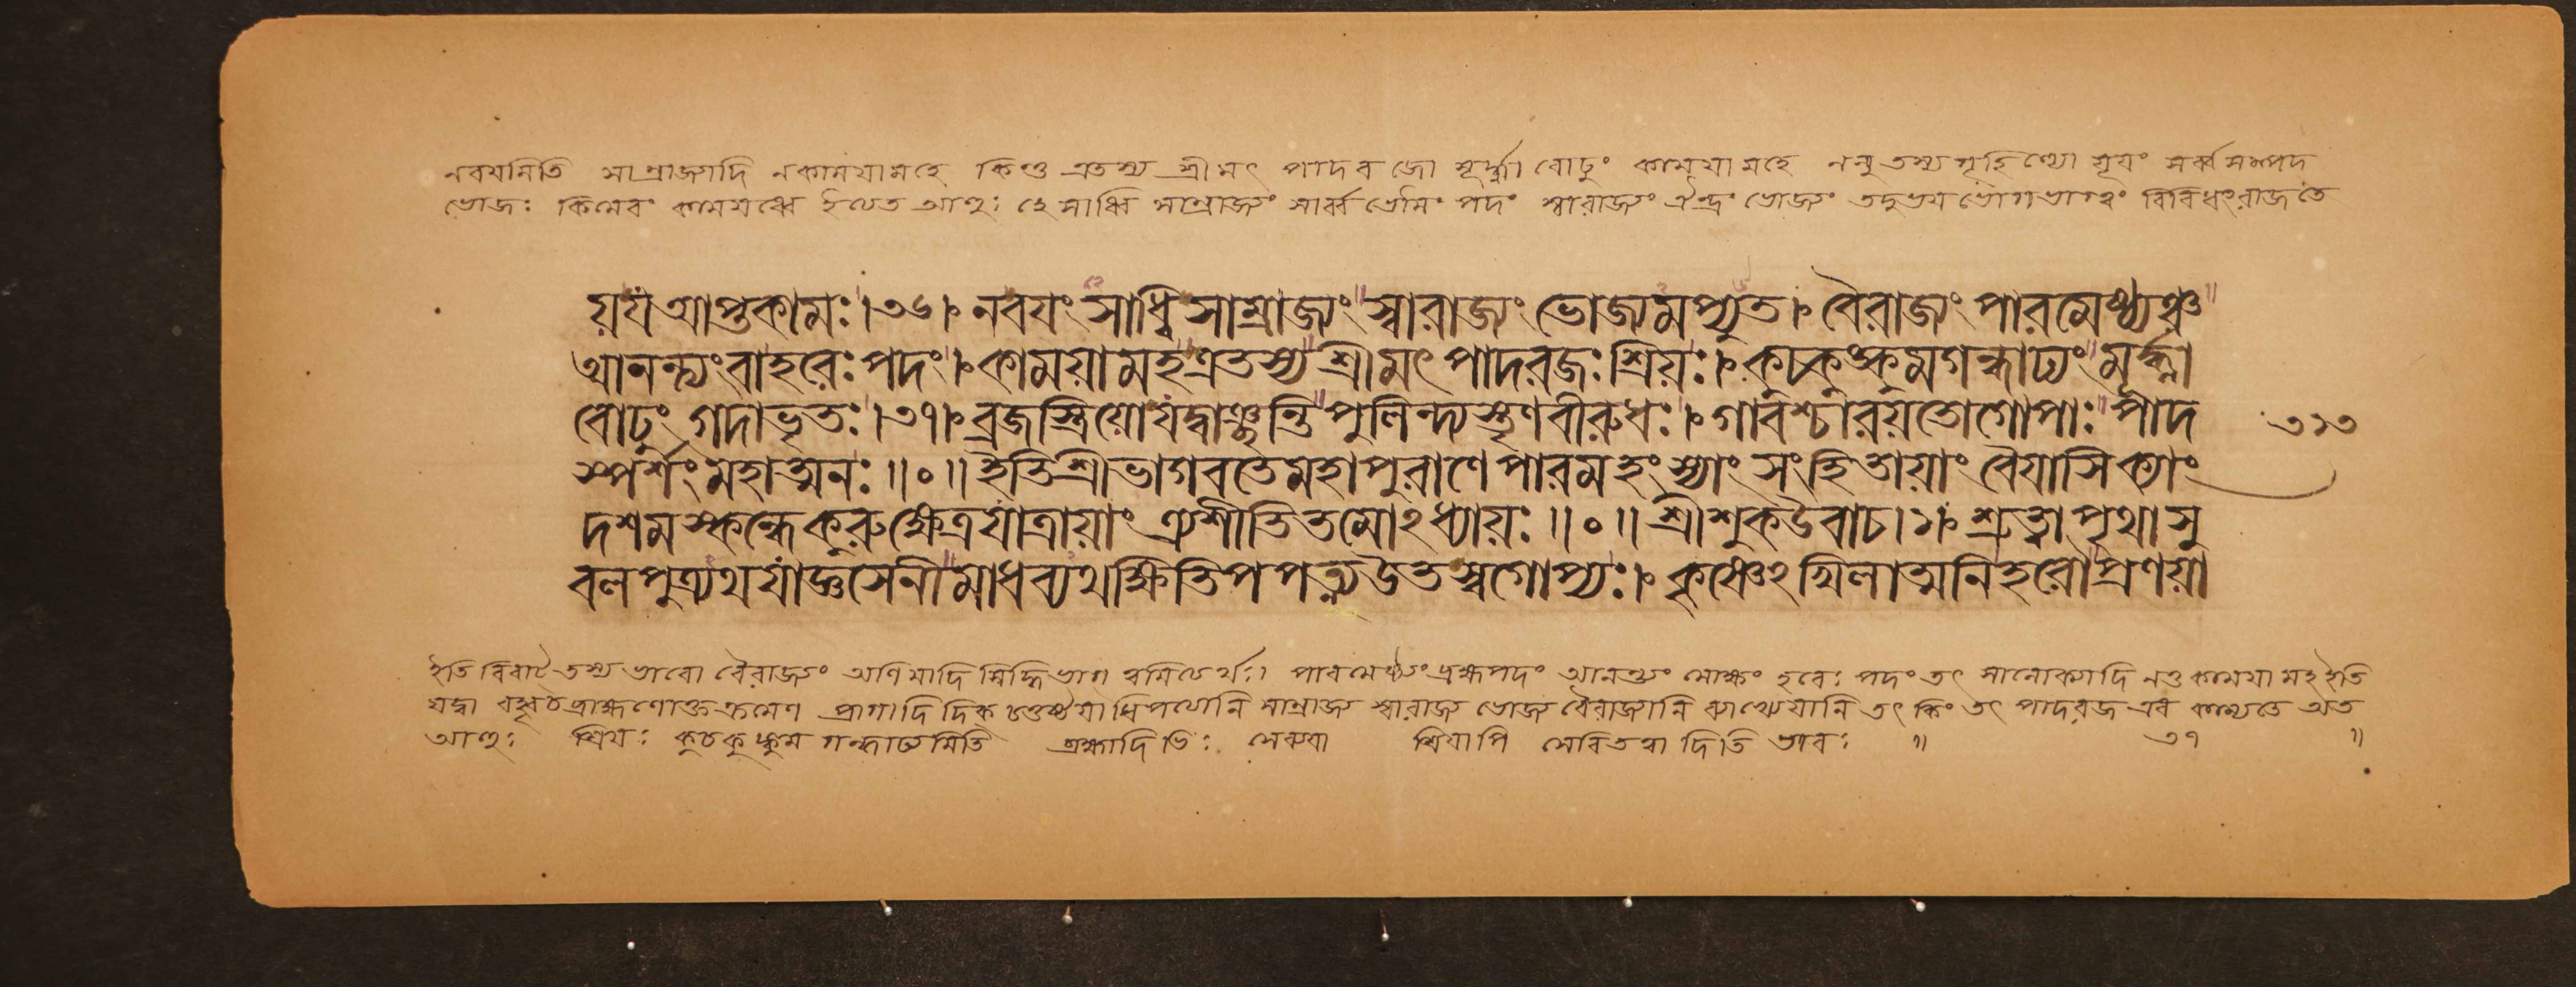 নবযমিতি সাম্রাজ্যাদি নকাময়ামহে কিন্তু এতস্য শ্রীমৎ পাদরজো মূর্দ্ধ্না বোঢুং কাময়ামহে ননু তস্য গৃহিণ্যো যূয়ং সর্ব্বসম্পদ
ভোজঃ কিমেবং কাময়ধ্বে ইত্যত আহুঃ হে সাধ্বি সাম্রাজ্যং সার্ব্বভৌমং পদং স্বারাজ্যং ঐন্দ্রং ভোজ্যং তদুভয়ভোগভাগ্ত্বং বিবিধং রাজতে
য়যং আপ্তকামঃ।৩৬। নবযং সাধ্বি সাম্রাজ্যং স্বারাজ্যং ভোজ্যমপ্যুত। বৈরাজ্যং পারমেষ্ঠ্যঞ্চ
আনন্ত্যং বা হরেঃ পদং। কাময়ামহ এতস্য শ্রীমৎ পাদরজঃ শ্রিয়ঃ। কুচকুঙ্কুমগন্ধাঢ্যং মূর্দ্ধ্না
বোঢুং গদাভৃতঃ।৩৭। ব্রজস্ত্রিয়ো যদ্বাঞ্ছন্তি পুলিন্দ্যস্তৃণবীরুধঃ। গাবশ্চারয়তো গোপাঃ পাদ
৩১৩
স্পর্শং মহাত্মনঃ॥০॥ ইতি শ্রীভাগবতে মহাপুরাণে পারমহংস্যাং সংহিতায়াং বৈয়াসিক্যাং
দশমস্কন্ধে কুরুক্ষেত্রযাত্রায়াং ত্র্যশীতিতমোঽধ্যায়ঃ॥০॥ শ্রীশুক উবাচ।১। শ্রুত্বা পৃথা সু
বলপুত্র্যথ যাজ্ঞসেনী মাধব্যথ ক্ষিতিপপত্ন্য উত স্বগোপ্যঃ। কৃষ্ণেঽখিলাত্মনি হরৌ প্রণয়া
ইতি বিরাট্ তস্য ভাবো বৈরাজ্যং অণিমাদি সিদ্ধিভাগ ত্বমিত্যর্থঃ। পারমেষ্ঠ্যং ব্রহ্মপদং আনন্ত্যং মোক্ষং হরেঃ পদং তৎ সালোক্যাদি নতু কাময়ামহ ইতি
যদ্বা বহ্বৃচব্রাহ্মণোক্তক্রমেণ প্রাগাদি দিক্ চতুষ্টয়াধিপত্যানি সাম্রাজ্য স্বারাজ্য ভোজ্য বৈরাজ্যানি ব্যাখ্যেয়ানি তৎ কিং তৎ পাদরজ এব কাম্যতে অত
আহুঃ শ্রিয়ঃ কুচকুঙ্কুম গন্ধাঢ্যমিতি ব্রহ্মাদিভিঃ সেব্যয়া শ্রিয়াপি সেবিতত্বাদিতি ভাবঃ ॥ ৩৭ ॥